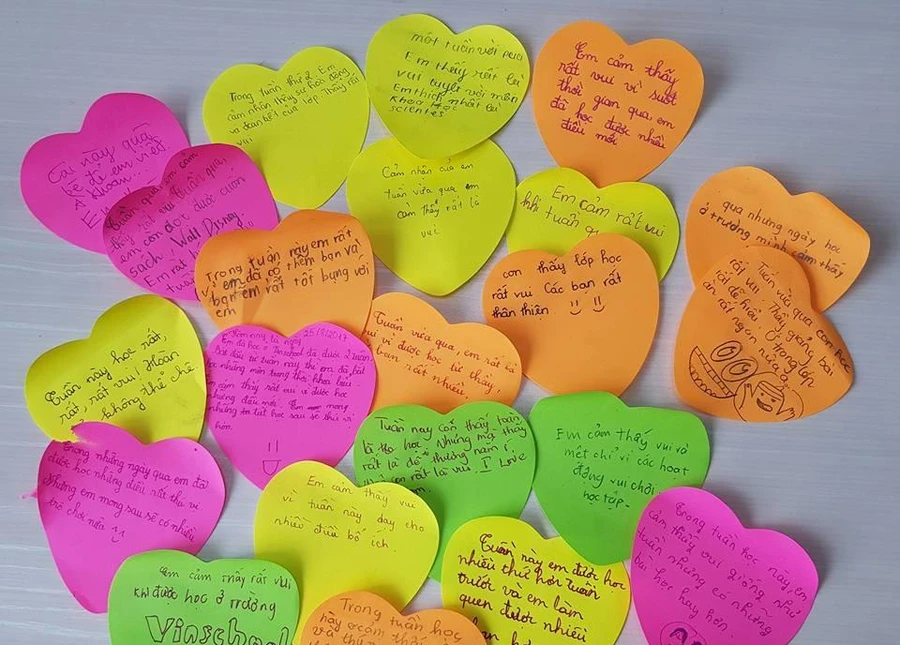 Cái này quá
bé để em viết
Trong tuần thứ 2 Em
cảm nhận thấy sự hoà đồng
và đoàn kết của lớp. Thấy rất
vui
một tuần với
Em thấy rất là
vui tuyệt với môn
Em thích nhất là
khoa học
scientes
Em cảm thấy
rất vui vì suốt
thời gian qua em
đã học được nhiều
điều mới
Tuần
này rất vui Tuần qua
con đọc được cuốn
sách Walt Disney.
Em rất
Cảm nhận của em
tuần vừa qua em
cảm thấy rất là
vui
Em cảm rất vui
khi tuần
qua những ngày học
ở trường mình cảm thấy
Trong tuần này em rất
vì em đã có thêm bạn và
bạn em rất tốt bụng với
em
con thấy lớp học
rất vui Các bạn rất
thân thiện
Tuần vừa qua con học
rất vui. Thầy giảng bài
rất dễ hiểu. Trong lớp
ăn rất ngon nữa ạ.
Tuần này học rất,
rất, rất vui! Hoàn
không thể chê
25/8/2017
Em đã học ở Vinschool đã được 2 tuần
Bắt đầu từ tuần này thì em đã bắt
học những môn trong thời khoá biểu
cảm thấy rất vui vì được học
những điều mới. Em mong
những tiết học sau sẽ thú vị
hơn.
Tuần vừa qua, em rất là
vui vì được học từ thầy,
bạn rất nhiều.
Tuần nay con thấy toàn
là tự học. Nhưng mà thầy
rất là dễ thương nắm !
rất là vui I Love
Em cảm thấy vui và
mệt chỉ vì các hoạt
động vui chơi
học tập.
Trong những ngày qua em đã
được học những điều rất thú vị
Nhưng em mong sau sẽ có nhiều
trò chơi nữa
Em cảm thấy vui
vì tuần này dạy cho
nhiều điều bổ ích.
Tuần này em được học
nhiều thứ hơn tuần
trước và em làm
quen được nhiều
bạn
Trong tuần học này, em
cảm thấy vui giống như
tuần nhưng có những
bài học hay hơn.
Em cảm thấy rất vui
khi được học ở trường
Vinschool
Trong tuần học
này